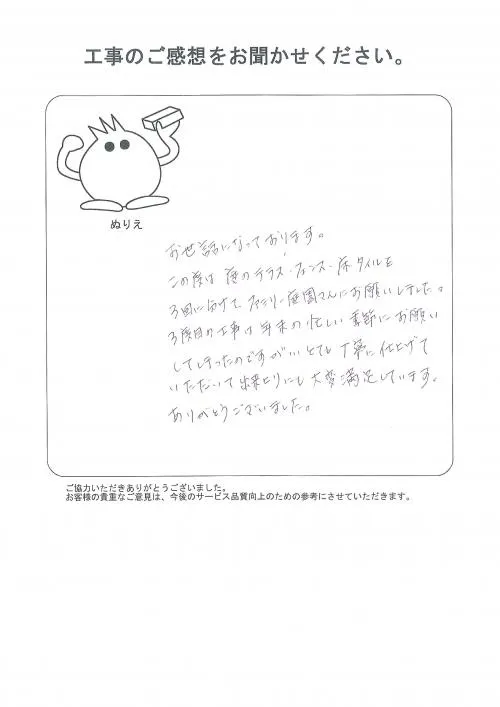 工事のご感想をお聞かせください。
ぬりえ
お世話になっております。
この度は庭のテラス・フェンス・床タイルを
3回に分けて、ファミリー庭園さんにお願いしました。
3度目の工事は年末の忙しい季節にお願い
してしまったのですが、とても丁寧に仕上げて
いただいて出来上りにも大変満足しています。
ありがとうございました。
ご協力いただきありがとうございました。
お客様の貴重なご意見は、今後のサービス品質向上のための参考にさせていただきます。